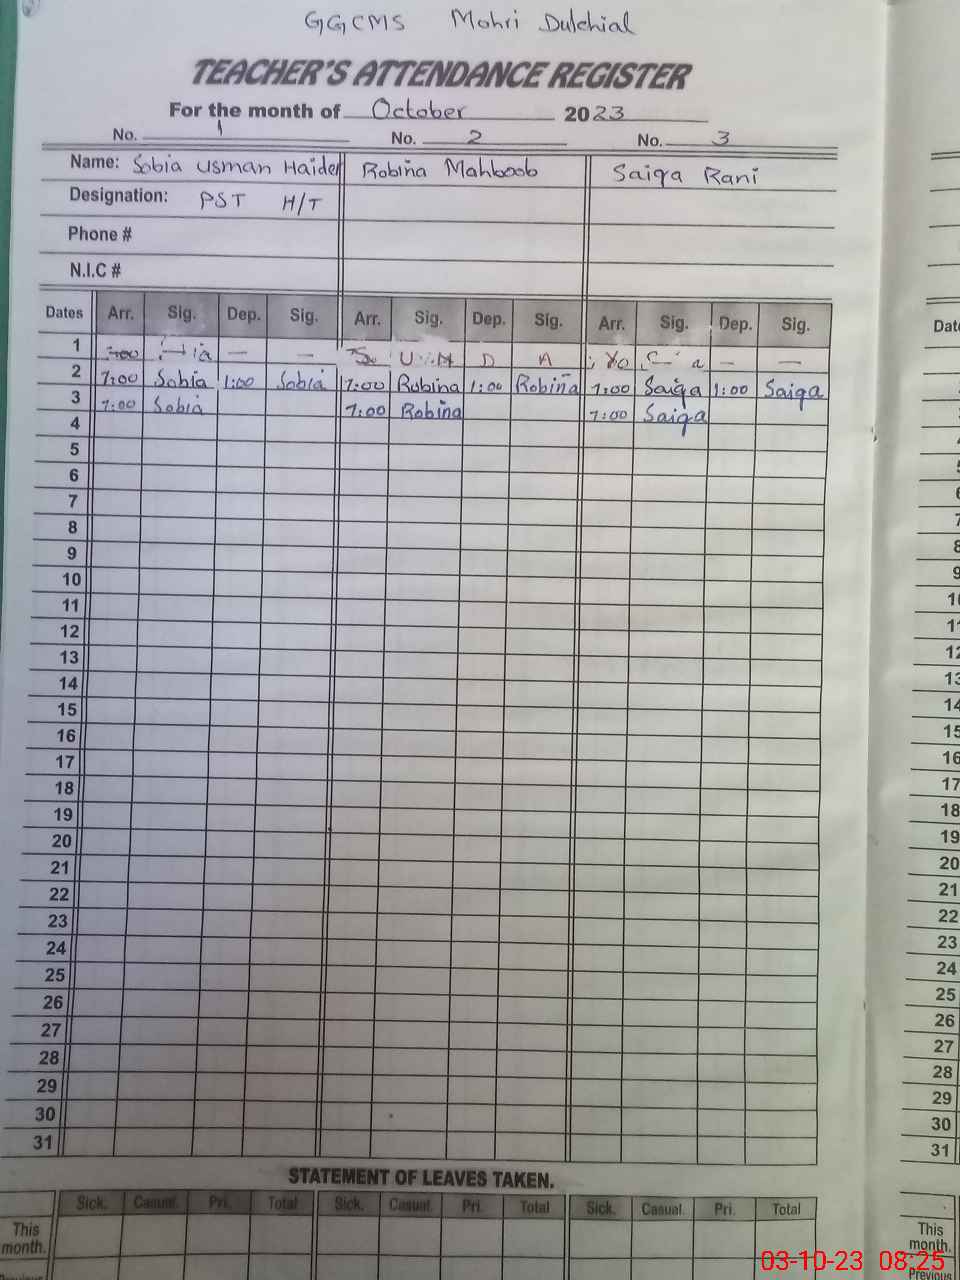 GGCMS Mohri Dulchial
TEACHER'S ATTENDANCE REGISTER
For the month of October 2023
No. 1 No. 2 No. 3
Name: Sobia Usman Haider Robina Mahboob Saiqa Rani
Designation: PST H/T
Phone #
N.I.C #
Dates Arr. Sig. Dep. Sig. Arr. Sig. Dep. Sig. Arr. Sig. Dep. Sig. Date
1 — — S U N D A — —
2 7:00 Sobia 1:00 Sobia 7:00 Robina 1:00 Robina 7:00 Saiqa 1:00 Saiqa
3 7:00 Sobia 7:00 Robina 7:00 Saiqa
4
5
6
7
8
9
10
11
12
13
14
15
16
17
18
19
20
21
22
23
24
25
26
27
28
29
30
31
STATEMENT OF LEAVES TAKEN.
Sick. Casual. Pri. Total Sick. Casual. Pri. Total Sick. Casual. Pri. Total
This month. This month.
Previous Previous
03-10-23 08:25